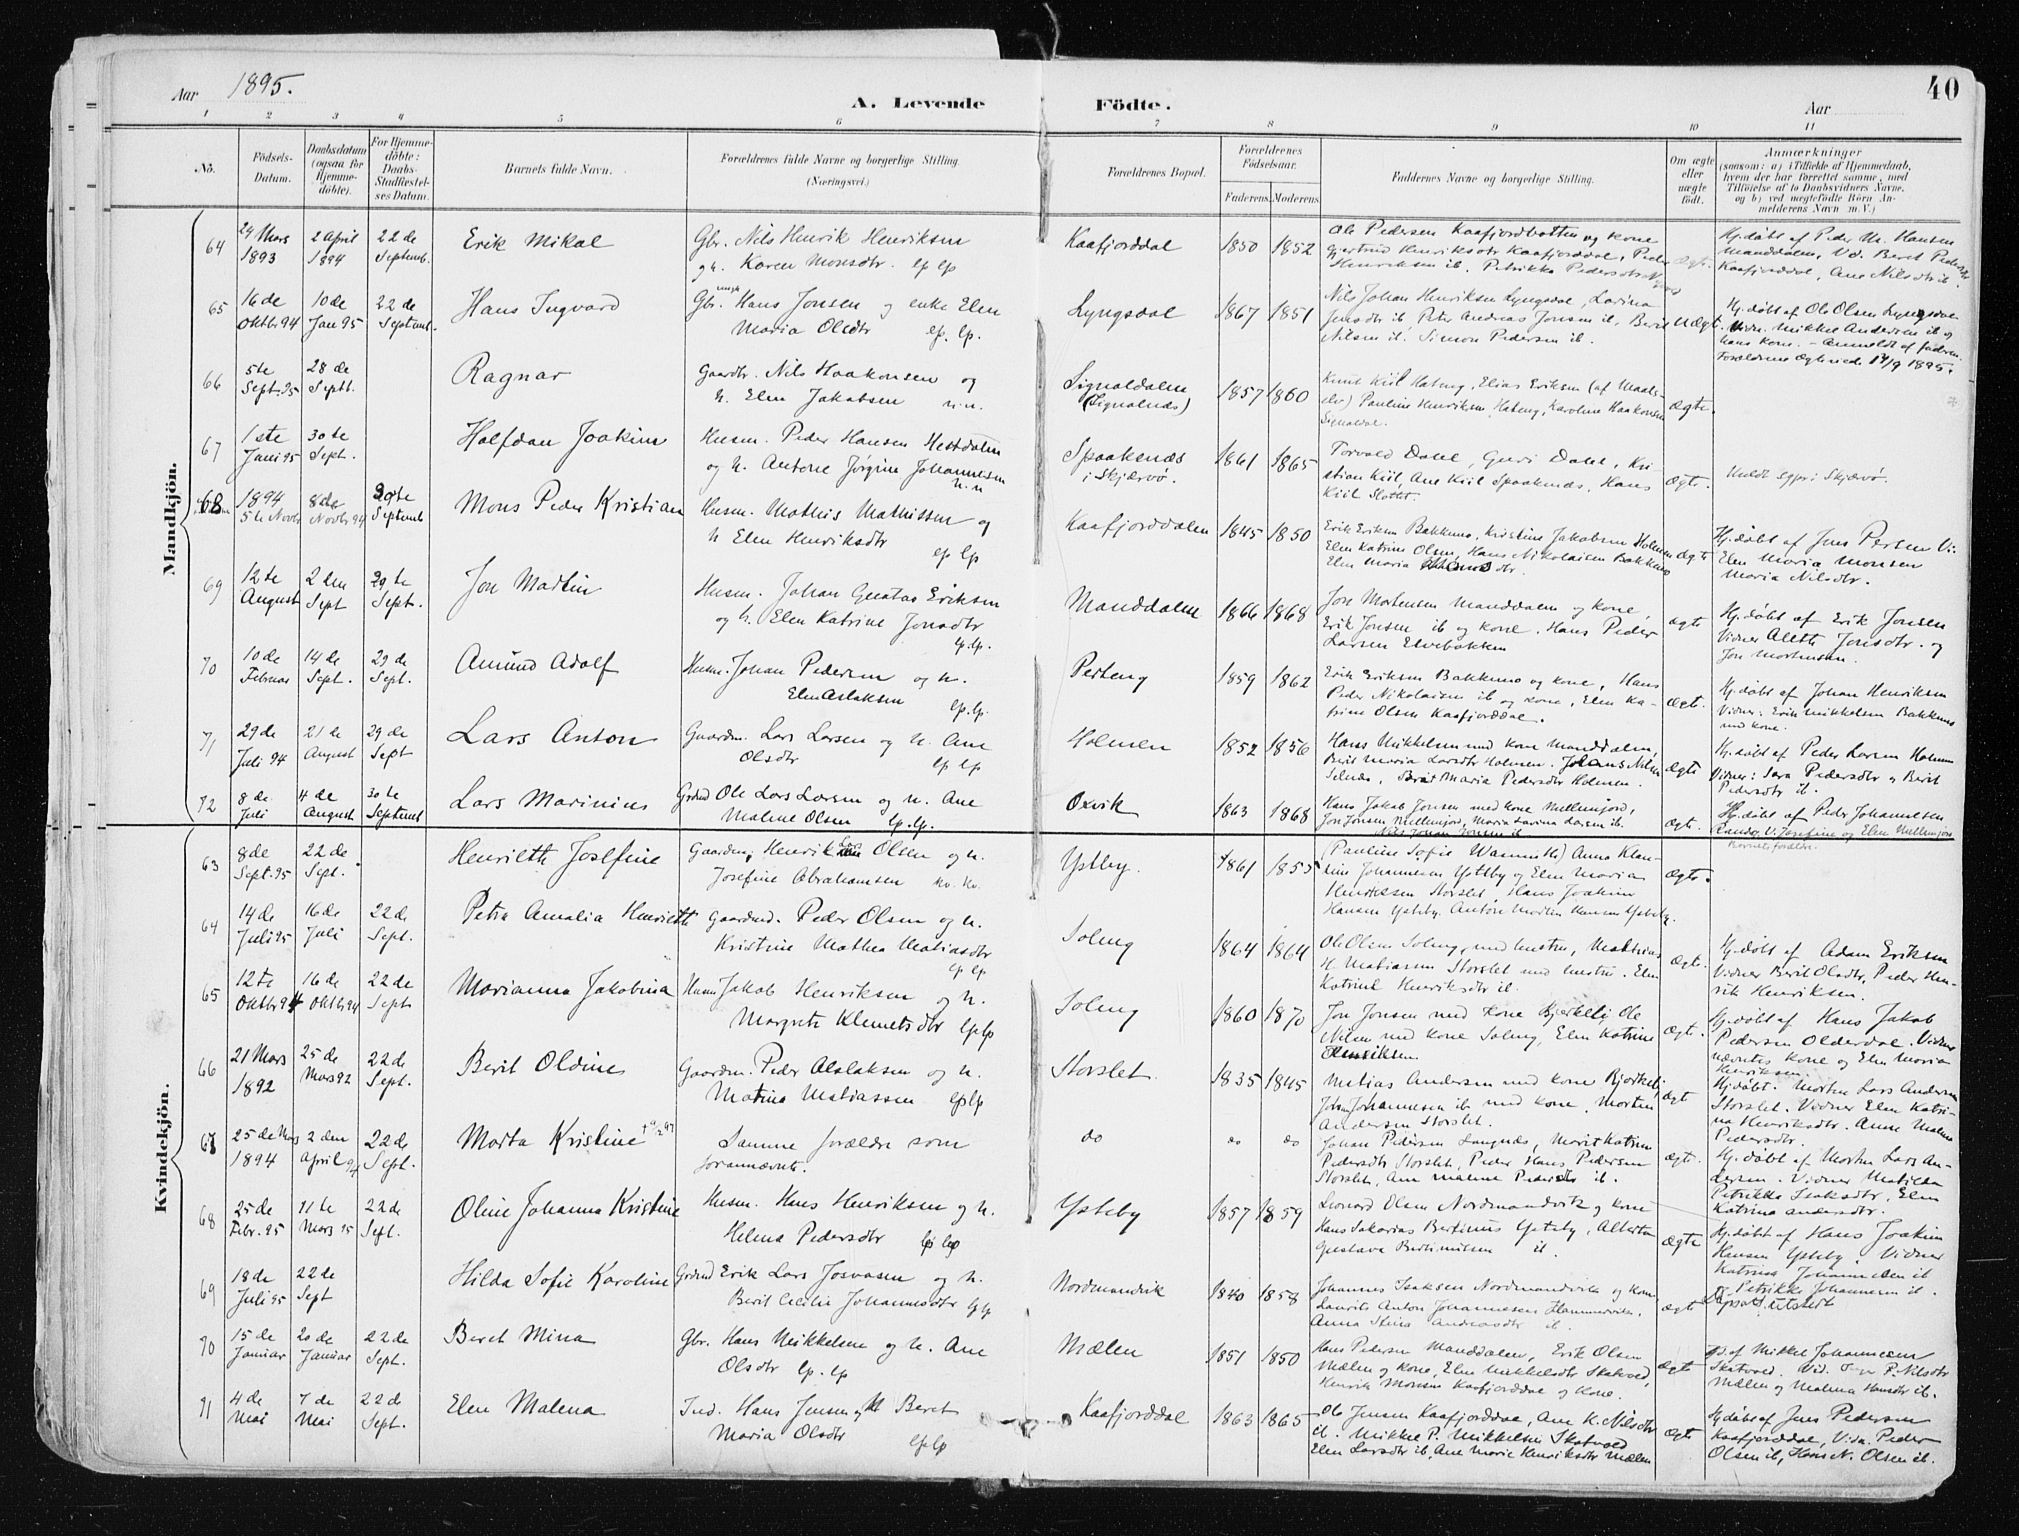 Aar 1895.
A. Levende
Födte.
Aar
40
1 2 3 4 5 6 7 8 9 10 11
No.
Födsels-
Datum.
Daabsdatum
(ogsaa for
Hjemme-
döbte).
For Hjemme-
döbte:
Daabs-
Stadfæstel-
ses Datum.
Barnets fulde Navn.
Forældrenes fulde Navne og borgerlige Stilling.
(Næringsvei.)
Forældrenes Bopæl.
Forældrenes
Födselsaar.
Faderens.
Moderens.
Faddernes Navne og borgerlige Stilling.
Om ægte
eller
uægte
födt.
Anmærkninger
(saasom: a) i Tilfælde af Hjemmedaab,
hvem der har forrettet samme, med
Tilföielse af to Daabsvidners Navne.
og b) ved uægtefödte Börn An-
melderens Navn m. V.)
Mandkjön.
64
29 Mars
1893
2 April
1894
22 de
Septemb.
Erik Mikal
Gbr. Nils Henrik Henriksen
og h. Karen Monsdtr. lp lp
Kaafjorddal
1850
1852
Ole Pedersen Kaafjordbotten og kone
Gjertrud Henriksdtr Kaafjorddal, Peder
Henriksen ib, Petrikka Pedersdtr
ægte
Hj. døbt af Peder M. Hansen
Manddalen, Vd. Beret Pedersdtr
Kaafjorddal, Ane Nilsdtr ib.
65
16 de
Oktbr 94
10 de
Jan 95
22 de
Septemb.
Hans Ingvard
Gbr. ungk Hans Jonsen og enke Elen
Maria Olsdtr lp. lp.
Lyngsdal
1867
1851
Nils Johan Henriksen Lyngsdal, Lavina
Jensdtr ib, Peter Andreas Jonsen ib, Berit
Nilsen ib, Simon Pedersen ib.
uægt.
Hj. døbt af Ole Olsen Lyngsdal
Vidn. Mikkel Andersen ib og
hans kone. - Anmeldt af faderen.
Forældrene ægteviede 14/9 1895.
66
5te
Sept. 95
28 de
Septt.
Ragnar
Gaardbr. Nils Haakonsen og
h. Elen Jakobsen n.n.
Signaldalen
(Signalnæs)
1857
1860
Knut Kiil Hateng, Elias Eriksen (af Maals-
elv) Pauline Henriksen Hateng, Karoline Haakonsen
Signaldal.
ægte.
67
1 ste
Juni 95
30 te
Sept.
Halfdan Joakim
Husm. Peder Hansen Hestdalen
og h. Antone Jørgine Johannesen
n.n
Spaakenæs
i Skjærvø.
1861
1865
Torvald Dahl, Guri Dahl, Kri
stian Kiil, Ane Kiil Spaaknæs, Hans
Kiil Slottet.
ægte.
Meldt sgpr i Skjærvø.
68
1894
5te Novbr
8 de
Novbr 94
29 te
Septemb
Mons Peder Kristian
Husm. Mathis Mathissen og
h Elen Henriksdtr lp lp
Kaafjorddalen
1845
1850
Erik Eriksen Bakkemo, Kristine Jakobsen Holmen
Elen Katrine Olsen, Hans Nikolaisen Bakkemo
Elen Maria
ægte
Hj. døbt af Jens Persen Vi.
Elen Maria Monsen
Maria Nilsdtr.
69
12 te
August
2 den
Sept
29 te
Sept.
Jon Martin
Husm. Johan Gustav Eriksen
og h. Elen Katrine Jonsdtr
lp. lp.
Manddalen
1866
1868
Jon Mortensen Manddalen og kone,
Erik Jonsen ib og kone. Hans Peder
Larsen Elvebakken
ægte
Hj. døbt af Erik Jonsen
Vidner Aleth Jonsdtr. og
Jon Mortensen.
70
10 de
Februar
14 de
Sept.
29 de
Sept.
Amund Adolf
Husm. Johan Pedersen og h.
Elen Aslaksen lp. lp.
Perteng
1859
1862
Erik Eriksen Bakkemo og kone, Hans
Peder Nikolaisen ib og kone, Elen Ka-
trine Olsen Kaafjorddal.
ægte.
Hj. døbt af Johan Henriksen
Vidner: Erik Mikkelsen Bakkemo
med kone.
71
29 de
Juli 94
21 de
August
29 de
Sept
Lars Anton
Gaardm. Lars Larsen og h. Ane
Olsdtr lp lp
Holmen
1852
1856
Hans Mikkelsen med kone Manddalen,
Berit Maria Larsdtr Holmen. Johans Nilsen
Selnæs, Berit Maria Pedersdtr Holmen.
ægte
Hj. døbt af Peder Larsen Holmen
Vidner: Sara Pedersdtr og Berit
Pedersdtr ib.
72
8 de
Juli
4 de
August
30 te
Septemb
Lars Marinius
Grdmd Ole Lars Larsen og h. Ane
Malene Olsen lp. lp.
Oxvik
1863
1868
Hans Jakob Jonsen med kone Mellemjord,
Jon Jonsen Mellemjord, Maria Lavina Larsen ib.
Nils Johan Jonsen ib
ægte.
Hj. døbt af Peder Johannesen
V. Josefine og Elen Mellemjord
Barnets forældre.
Kvindekjön.
63
8 de
Sept. 95
22 de
Sept.
Henriette Josefine
Gaardm. Henrik Olsen og h.
Josefine Abrahamsen kv. kv.
Ysteby.
1861
1855
(Pauline Sofie Warmuth) Anna Klau-
tine Johannesen Ysteby og Elen Maria
Henriksen Storslet, Hans Joakim
Hansen Ysteby. Anton Martin Hansen Ysteby.
ægte.
64
14 de
Juli 95
16 de
Juli
22 de
Sept.
Petra Amalia Henriette
Gaardmd. Peder Olsen og h.
Kristine Mathea Matiasdtr
lp lp
Soleng
1864
1864
Ole Olsen Soleng, med hustru, Mathias
H. Matiassen Storslet med hustru. Elen
Katrine Henriksdtr ib.
ægte.
Hj. døbt af Adam Eriksen
Vidner Beril Olsdtr, Peder Hen-
rik Henriksen.
65
12 te
Oktbr 94
16 de
Oktbr 94
22 de
Sept
Marianna Jakobina
Husm Jakob Henriksen og h.
Margrete Klemetsdtr lp lp
Soleng
1860
1870
Jon Jonsen med kone Bjerkeli, Ole
Nilsen med kone Soleng, Elen Katrine
Henriksen
ægte.
Hj. døbt af Hans Jakob
Pedersen Olderdal. Vidner
nævntes kone og Elen Maria
Henriksen.
66
21 Mars
1892
25 de
Mars 92
22 de
Sept.
Berit Oldine
Gaardm. Peder Aslaksen og h.
Matina Matiassen lp lp
Storslet.
1835
1845
Matias Andersen med kone Bjerkeli,
Johan Johannesen ib med kone, Morten
Andersen Storslet.
ægt
Hj. døbt. Morten Lars Andersen
Storslet. Vidner Elen Katri-
na Henriksdtr. Anne Malene
Pedersdtr.
67
25 de Mars
1894
2 den
April 94
22 de
Sept.
Marta Kristine
Samme forældre som
forannævnte.
do
do
do
Johan Pedersen Langnæs, Marit Katrine
Pedersdtr Storslet, Peder Hans Pedersen
Storslet, Ane Malene Pedersdtr ib.
ægte.
Hj. døbt af Morten Lars An-
dersen. Vidner Matilda
Petrikke Isaksdtr, Elen
Katrina Andersdtr.
68
25 de
Febr. 95
11 te
Mars 95
22 de
Sept.
Oline Johanna Kristine
Husm. Hans Henriksen og h.
Helena Pedersdtr lp lp
Ysteby
1857
1859
Leonard Olsen Nordmandvik og kone
Hans Sakarias Bertinius Ysteby, Albertha
Gustava Bertiniusen ib.
ægte
Hj. døbt af Hans Joakim
Hansen Ysteby. Vidner
Katrina Johannesen ib
og Petrikke Johannesen ib.
69
18 de
Juli 95
22 de
Sept
Hilda Sofie Karoline
Grdmd Erik Lars Josvasen og h.
Berit Cecilie Johannesdtr lp lp
Nordmandvik
1840
1858
Johannes Isaksen Nordmandvik og kone
Laurits Anton Johannesen Hammervik.
Anna Stina Andreasdtr ib.
ægte
70
15 de
Januar
20 de
Januar
22 de
Sept.
Beret Mina
Gbr. Hans Mikkelsen og h. Ane
Olsdtr lp. lp
Mælen
1851
1850
Hans Pedersen Manddalen, Erik Olsen
Mælen og kone, Elen Mikkelsdtr Skatvold,
Henrik Monsen Kaafjorddal og kone.
ægte
Hj. d. af Mikkel Johannesen
Skatvold. Vid. P. Nilsdtr
Mælen og Malena Hansdtr ib.
71
4 de
Mai
7 de
Mai
22 de
Sept.
Elen Malena
Ind. Hans Jensen og H Beret
Maria Olsdtr lp lp
Kaafjorddal
1863
1865
Ole Jensen Kaafjorddal, Ane K. Nilsdtr
ib. Mikkel P. Mikkelsen Skatvold
Elen Larsdtr ib, Ane Marie Henriksdtr Mælen
ægte
Hj. døbt af Jens Pedersen
Kaafjorddal, Vidn. Peder
Olsen ib, Hans N. Olsen ib.